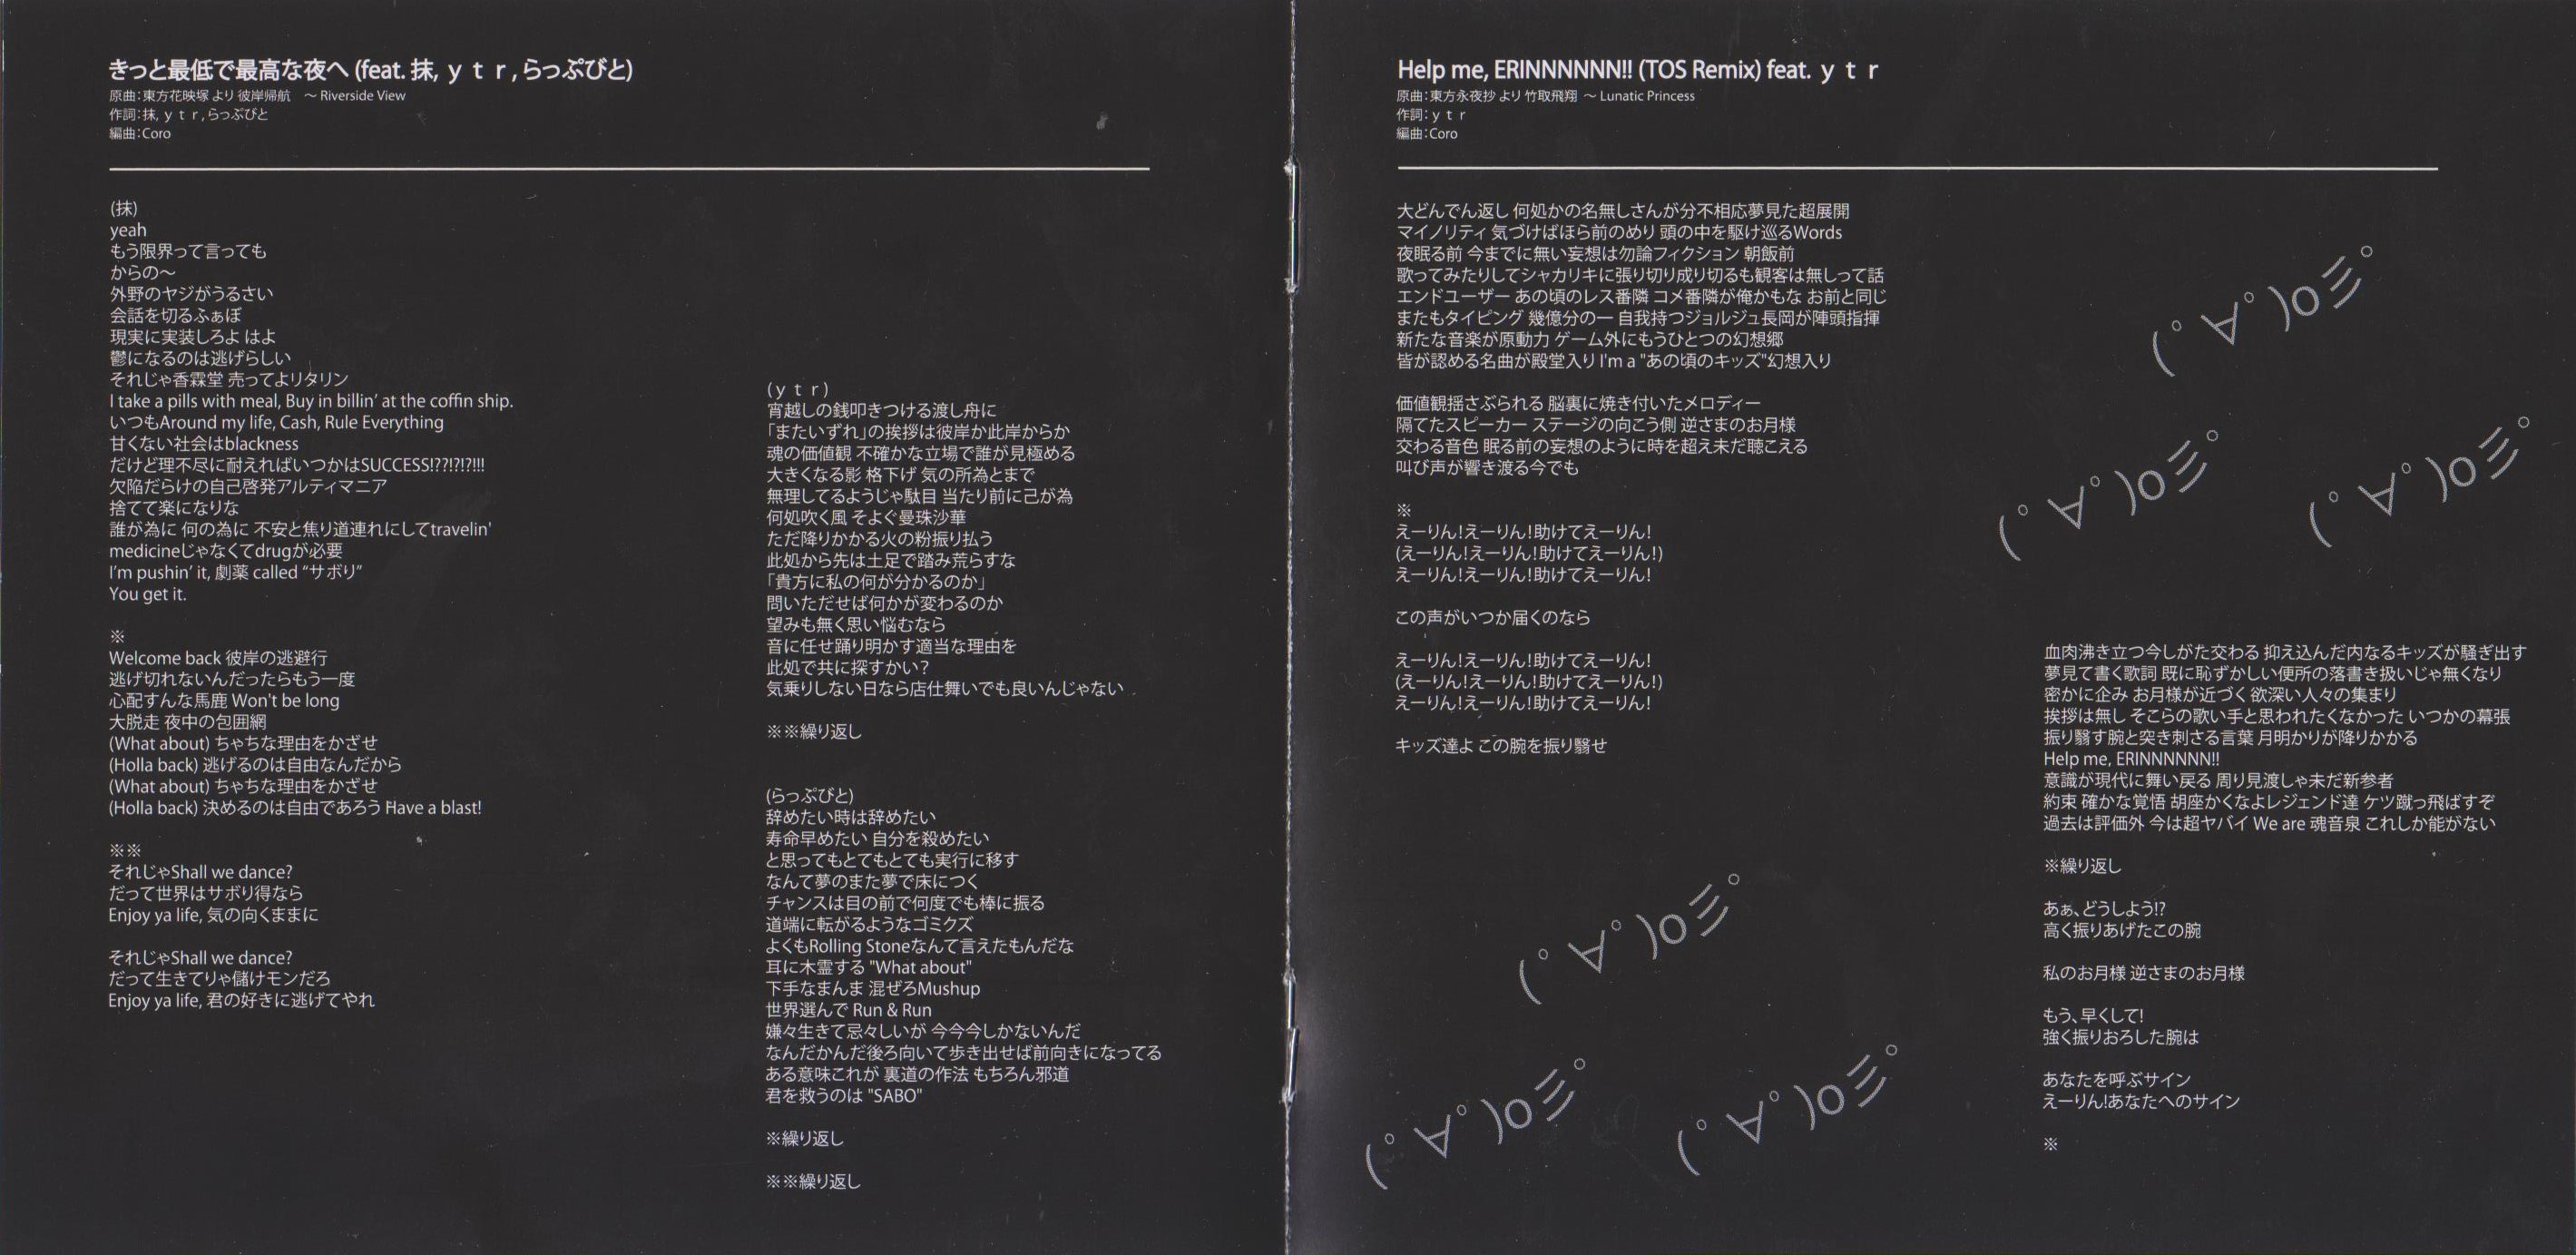 きっと最低で最高な夜へ (feat. 抹, ｙｔｒ, らっぷびと)
原曲：東方花映塚 より 彼岸帰航　～ Riverside View
作詞：抹, ｙｔｒ, らっぷびと
編曲：Coro
(抹)
yeah
もう限界って言っても
からの～
外野のヤジがうるさい
会話を切るふぁぼ
現実に実装しろよ はよ
鬱になるのは逃げらしい
それじゃ香霖堂 売ってよリタリン
I take a pills with meal, Buy in billin’ at the coffin ship.
いつもAround my life, Cash, Rule Everything
甘くない社会はblackness
だけど理不尽に耐えればいつかはSUCCESS!??!?!?!!!
欠陥だらけの自己啓発アルティマニア
捨てて楽になりな
誰が為に 何の為に 不安と焦り道連れにしてtravelin'
medicineじゃなくてdrugが必要
I’m pushin’ it, 劇薬 called “サボり”
You get it.
※
Welcome back 彼岸の逃避行
逃げ切れないんだったらもう一度
心配すんな馬鹿 Won't be long
大脱走 夜中の包囲網
(What about) ちゃちな理由をかざせ
(Holla back) 逃げるのは自由なんだから
(What about) ちゃちな理由をかざせ
(Holla back) 決めるのは自由であろう Have a blast!
※※
それじゃShall we dance?
だって世界はサボり得なら
Enjoy ya life, 気の向くままに
それじゃShall we dance?
だって生きてりゃ儲けモンだろ
Enjoy ya life, 君の好きに逃げてやれ
(ｙｔｒ)
宵越しの銭叩きつける渡し舟に
「またいずれ」の挨拶は彼岸か此岸からか
魂の価値観 不確かな立場で誰が見極める
大きくなる影 格下げ 気の所為とまで
無理してるようじゃ駄目 当たり前に己が為
何処吹く風 そよぐ曼珠沙華
ただ降りかかる火の粉振り払う
此処から先は土足で踏み荒らすな
「貴方に私の何が分かるのか」
問いただせば何かが変わるのか
望みも無く思い悩むなら
音に任せ踊り明かす適当な理由を
此処で共に探すかい？
気乗りしない日なら店仕舞いでも良いんじゃない
※※繰り返し
(らっぷびと)
辞めたい時は辞めたい
寿命早めたい 自分を殺めたい
と思ってもとてもとても実行に移す
なんて夢のまた夢で床につく
チャンスは目の前で何度でも棒に振る
道端に転がるようなゴミクズ
よくもRolling Stoneなんて言えたもんだな
耳に木霊する "What about"
下手なまんま 混ぜろMushup
世界選んで Run & Run
嫌々生きて忌々しいが 今今今しかないんだ
なんだかんだ後ろ向いて歩き出せば前向きになってる
ある意味これが 裏道の作法 もちろん邪道
君を救うのは "SABO"
※繰り返し
※※繰り返し
Help me, ERINNNNNN!! (TOS Remix) feat. ｙｔｒ
原曲：東方永夜抄 より 竹取飛翔 ～ Lunatic Princess
作詞：ｙｔｒ
編曲：Coro
大どんでん返し 何処かの名無しさんが分不相応夢見た超展開
マイノリティ 気づけばほら前のめり 頭の中を駆け巡るWords
夜眠る前 今までに無い妄想は勿論フィクション 朝飯前
歌ってみたりしてシャカリキに張り切り成り切るも観客は無しって話
エンドユーザー あの頃のレス番隣 コメ番隣が俺かもな お前と同じ
またもタイピング 幾億分の一 自我持つジョルジュ長岡が陣頭指揮
新たな音楽が原動力 ゲーム外にもうひとつの幻想郷
皆が認める名曲が殿堂入り I'm a "あの頃のキッズ"幻想入り
価値観揺さぶられる 脳裏に焼き付いたメロディー
隔てたスピーカー ステージの向こう側 逆さまのお月様
交わる音色 眠る前の妄想のように時を超え未だ聴こえる
叫び声が響き渡る今でも
※
えーりん！えーりん！助けてえーりん！
(えーりん！えーりん！助けてえーりん！)
えーりん！えーりん！助けてえーりん！
この声がいつか届くのなら
えーりん！えーりん！助けてえーりん！
(えーりん！えーりん！助けてえーりん！)
えーりん！えーりん！助けてえーりん！
キッズ達よ この腕を振り翳せ
( ﾟ∀ﾟ)o彡ﾟ
( ﾟ∀ﾟ)o彡ﾟ
( ﾟ∀ﾟ)o彡ﾟ
( ﾟ∀ﾟ)o彡ﾟ
( ﾟ∀ﾟ)o彡ﾟ
( ﾟ∀ﾟ)o彡ﾟ
血肉沸き立つ今しがた交わる 抑え込んだ内なるキッズが騒ぎ出す
夢見て書く歌詞 既に恥ずかしい便所の落書き扱いじゃ無くなり
密かに企み お月様が近づく 欲深い人々の集まり
挨拶は無し そこらの歌い手と思われたくなかった いつかの幕張
振り翳す腕と突き刺さる言葉 月明かりが降りかかる
Help me, ERINNNNNN!!
意識が現代に舞い戻る 周り見渡しゃ未だ新参者
約束 確かな覚悟 胡座かくなよレジェンド達 ケツ蹴っ飛ばすぞ
過去は評価外 今は超ヤバイ We are 魂音泉 これしか能がない
※繰り返し
あぁ、どうしよう!?
高く振りあげたこの腕
私のお月様 逆さまのお月様
もう、早くして!
強く振りおろした腕は
あなたを呼ぶサイン
えーりん!あなたへのサイン
※